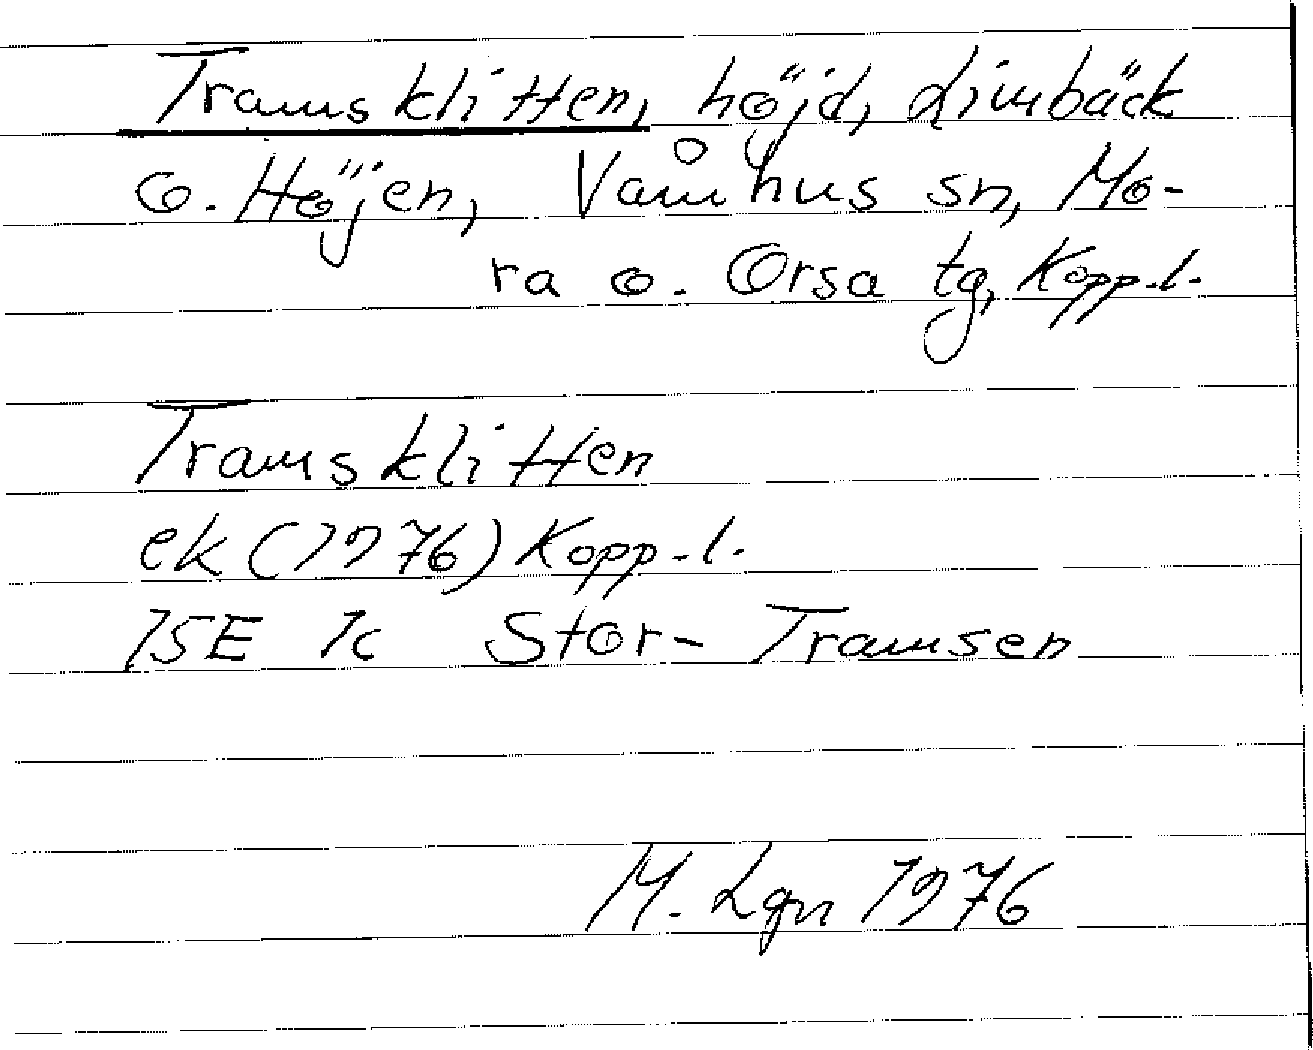 Tramsklitten, höjd, Limbäck
o. Höjen, Våmhus sn, Mo-
ra o. Orsa tg, Kopp.l.
Tramsklitten
ek (1976) Kopp.l.
15E 1c Stor-Tramsen
M. Lgn 1976